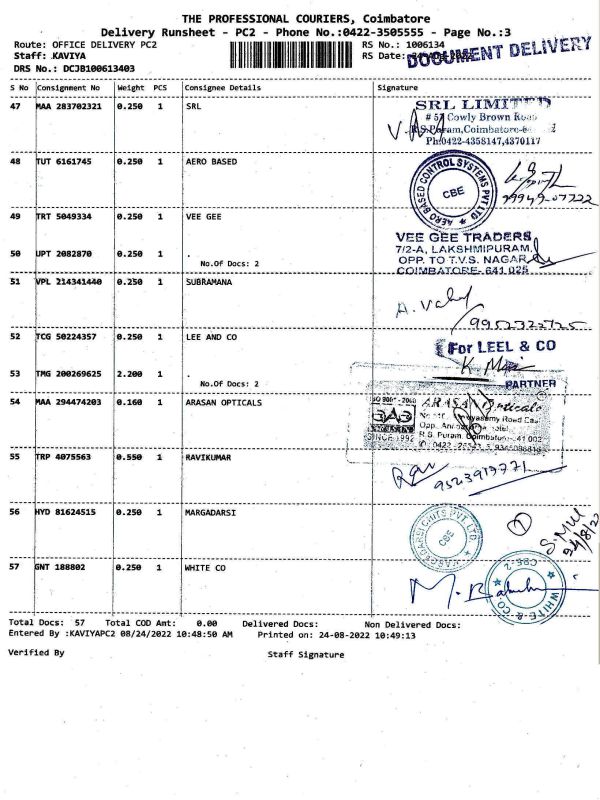 THE PROFESSIONAL COURIERS, Coimbatore
Delivery Runsheet - PC2 - Phone No.:0422-3505555 - Page No.:3
Route: OFFICE DELIVERY PC2
RS No.: 1006134
Staff: KAVIYA
RS Date:
DOCUMENT DELIVERY
DRS No.: DCJB100613403
S No Consignment No Weight PCS Consignee Details Signature
47 MAA 283702321 0.250 1 SRL
SRL LIMITED
# 57 Cowly Brown Road
R.S.Puram,Coimbatore-6
Ph:0422-4358147,4370117
48 TUT 6161745 0.250 1 AERO BASED
AERO BASED CONTROL SYSTEMS PVT LTD
CBE
99949-07222
49 TRT 5049334 0.250 1 VEE GEE
VEE GEE TRADERS
7/2-A, LAKSHMIPURAM,
OPP. TO T.V.S. NAGAR
COIMBATORE- 641 025
50 UPT 2082870 0.250 1 .
No.Of Docs: 2
51 VPL 214341440 0.250 1 SUBRAMANA
9952322725
52 TCG 50224357 0.250 1 LEE AND CO
For LEEL & CO
53 TMG 200269625 2.200 1 .
No.Of Docs: 2
PARTNER
54 MAA 294474203 0.160 1 ARASAN OPTICALS
ARASAN Opticals
SINCE 1992
R.S. Puram, Coimbatore-641 002
55 TRP 4075563 0.550 1 RAVIKUMAR
Ravi
9523919771
56 HYD 81624515 0.250 1 MARGADARSI
MARGADARSI CHITS PVT. LTD
CBE
1
24/8/22
57 GNT 188802 0.250 1 WHITE CO
WHITE & CO.
CBE-2
Total Docs: 57 Total COD Amt: 0.00 Delivered Docs: Non Delivered Docs:
Entered By :KAVIYAPC2 08/24/2022 10:48:50 AM Printed on: 24-08-2022 10:49:13
Verified By Staff Signature